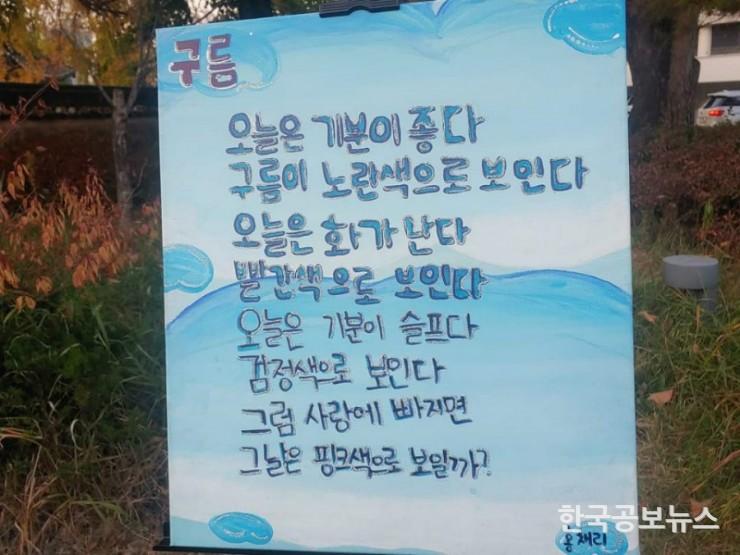 구름
오늘은 기분이 좋다
구름이 노란색으로 보인다
오늘은 화가 난다
빨간색으로 보인다
오늘은 기분이 슬프다
검정색으로 보인다
그럼 사랑에 빠지면
그날은 핑크색으로 보일까?
옹채리
한국공보뉴스